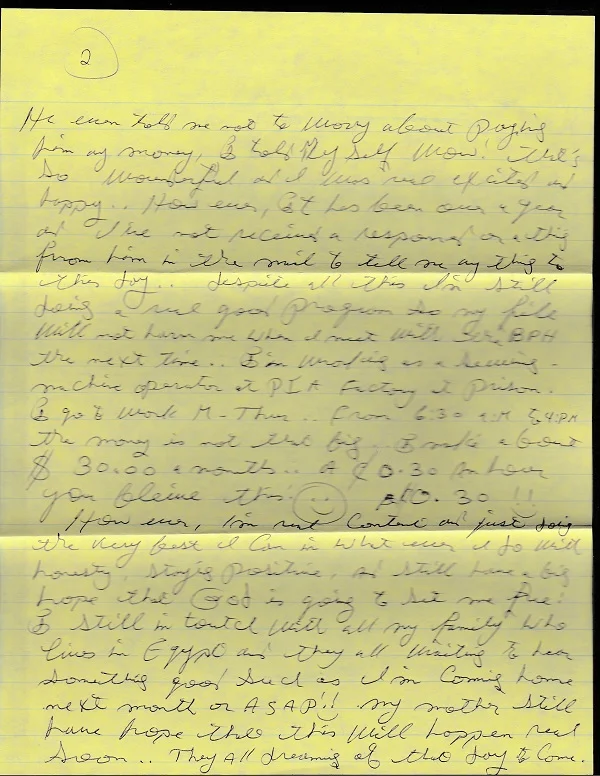 2
He even told me not to worry about paying
him any money, I told My Self Wow! that's
So wonderful and I was real excited and
happy.. How ever, It has been over a year
and I've not received a response or a thing
from him in the mail to tell me any thing to
this day.. despite all this I'm still
doing a real good program so my file
Will not harm me when I meet with the BPH
the next time.. I'm working as a sewing-
machine operator at PIA Factory at prison.
I go to work M-Thur.. From 6:30 a:M to 4:PM
the money is not that big. I make about
$ 30.00 a month.. A ¢0.30 an hour
you bleive this! .. 0.30 !!
How ever, I'm real Content and just doing
the very best I can in what ever I do with
honesty, staying positive, and still have a big
hope that God is going to set me free!
I still in toutch with all my family who
lives in Egypt and they all waiting to hear
something good such as I'm coming home
next month or ASAP!! my mother still
have hope that this will happen real
soon.. They all dreaming of that day to come.